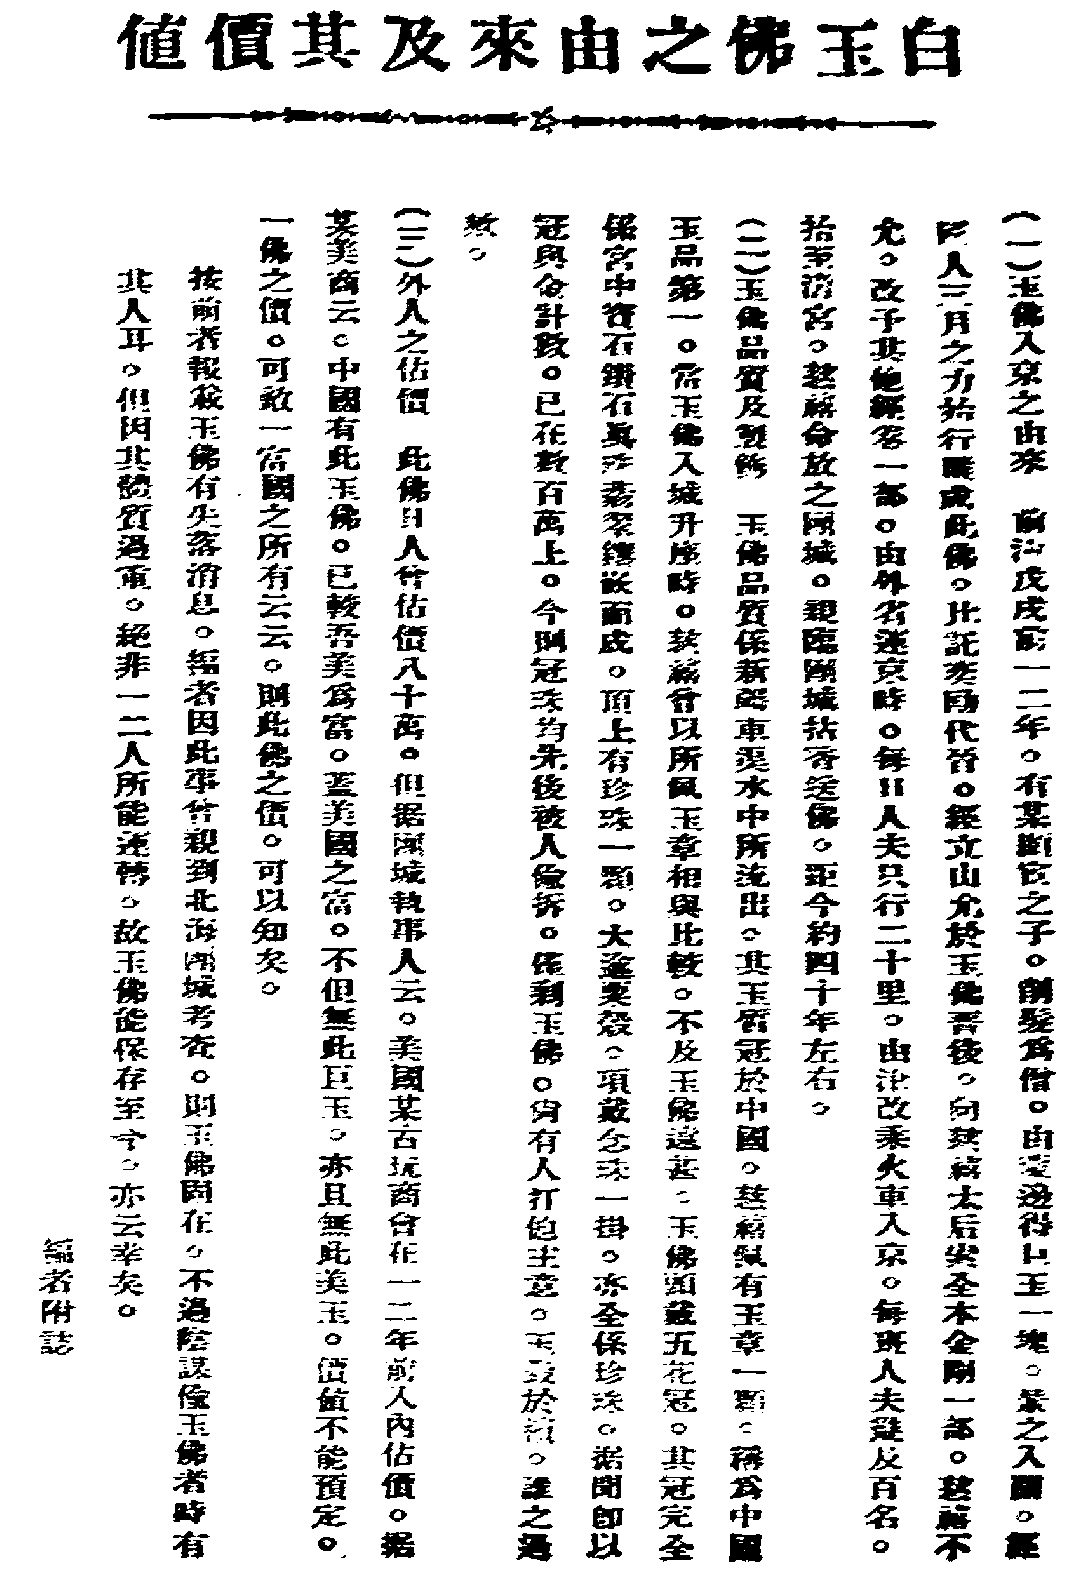 白玉佛之由來及其價値
(一)玉佛入京之由來 前淸戊戌前一二年。有某顯宦之子。削髮爲僧。由雲遊得白玉一塊。之入關。經
人三月之力始行雕成此佛。比託代晋。經立山允於玉佛晋後。向慈禧太后索全本金剛一部。慈禧不
允。改予其他經卷一部。由外省運京時。每日人夫只行二十里。由改乘火車入京。每班人夫疑及百名。
抬至淸宮。慈禧命放之團城。親臨團城拈香送佛。距今約四十年左右。
(二)玉佛品質及製飾 玉佛品質係新疆車渠水中所流出。其玉質冠於中國。慈禧佩有玉章一顆。稱爲中國
玉品第一。當玉佛入城升座時。慈禧曾以所佩玉章相與比較。不及玉佛遠甚。玉佛頭戴五花冠。其冠完全
係宮中寶石鑽石眞珠翡翠鑲嵌而成。頂上有珍珠一顆。大逾栗殼。項戴念珠一掛。亦全係珍珠。据聞卽以
冠與念計數。已在數百萬上。今則冠珠均先後被人偸拆。僅剩玉佛。尙有人打他主意。玉於。誰之過
歟。
(三)外人之估價 此佛日人曾估價八十萬。但据團城執事人云。美國某古玩商會在一二年前入內估價。据
某美商云。中國有此玉佛。已較吾美爲富。蓋美國之富。不但無此巨玉。亦且無此美玉。價値不能預定。
一佛之價。可敵一富國之所有云云。則此佛之價。可以知矣。
按前者報載玉佛有失落消息。編者因此事曾親到北海團城考查。則玉佛固在。不過陰謀偸玉佛者時有
其人耳。但因其體質過重。絕非一二人所能運轉。故玉佛能保存至今。亦云幸矣。
編者附誌